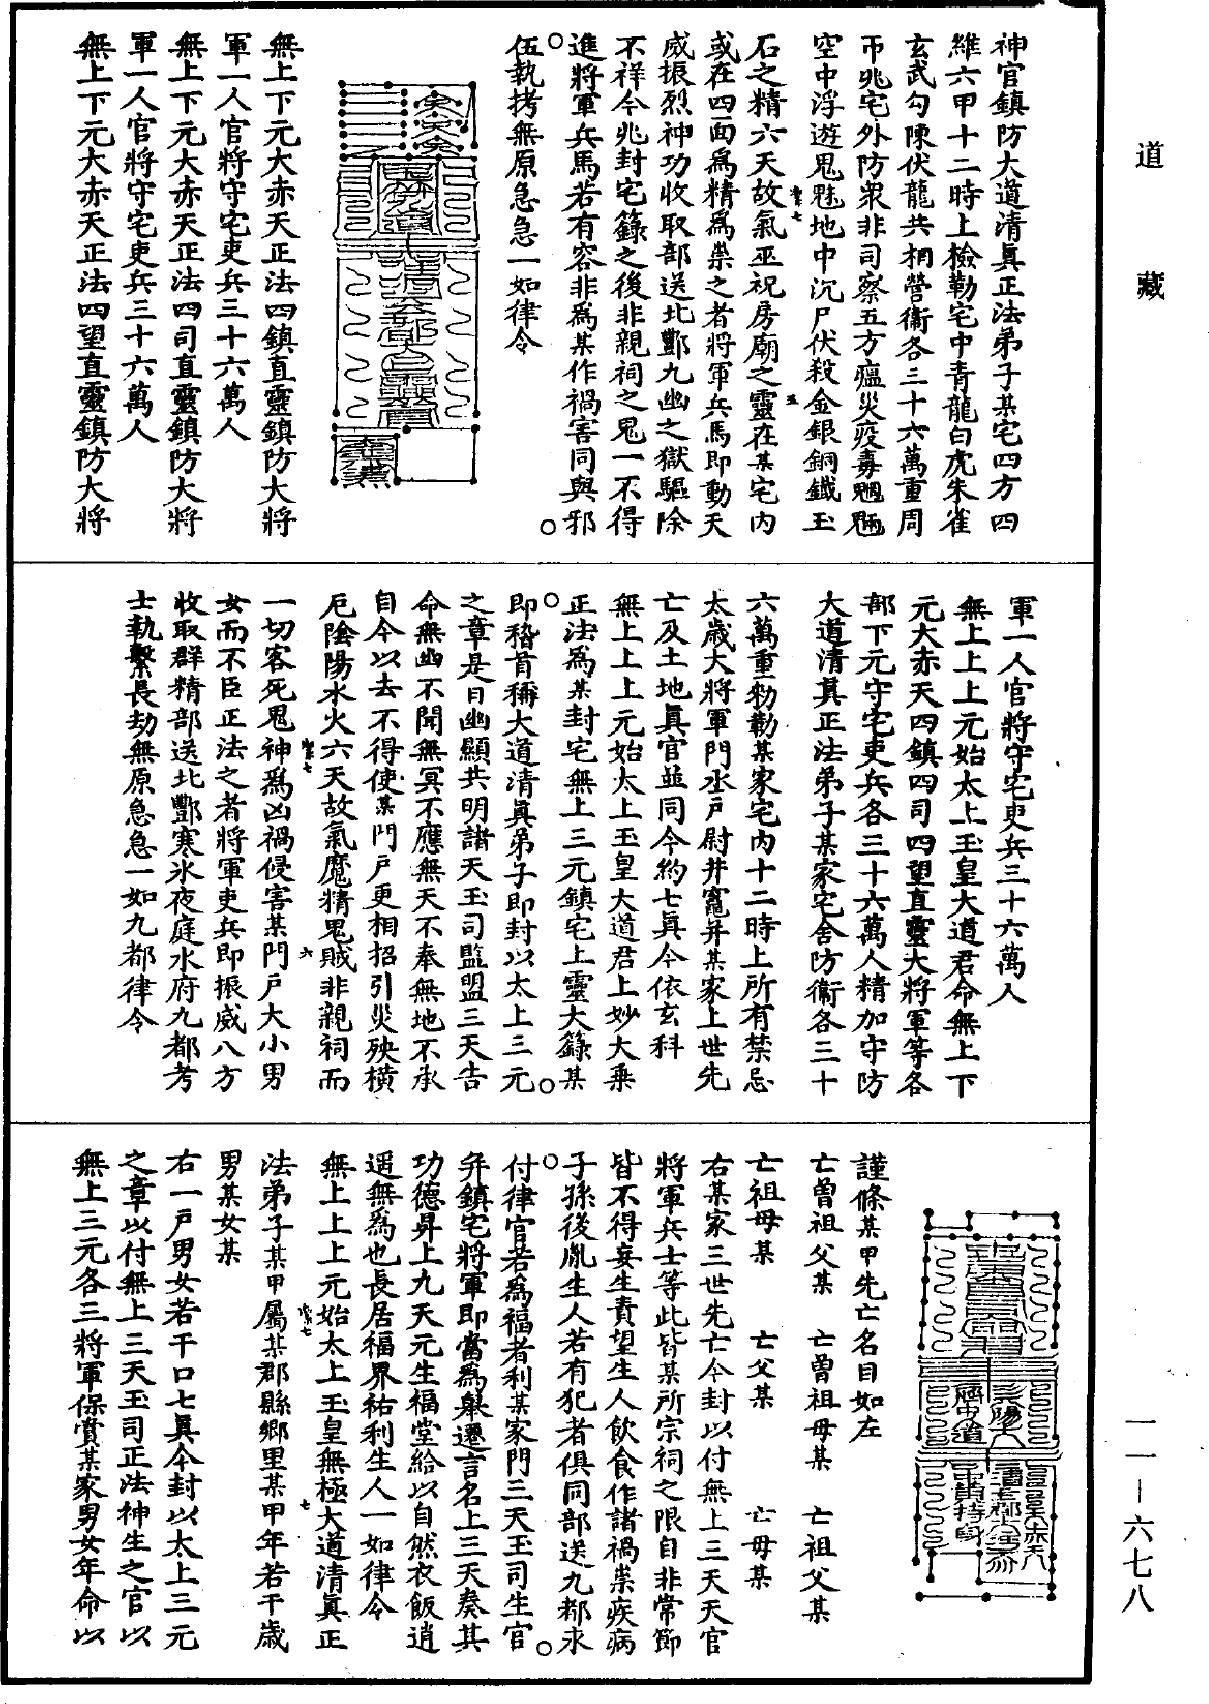 道藏
神官鎮防大道清真正法弟子某宅四方四
維六甲十二時上檢勒宅中青龍白虎朱雀
玄武勾陳伏龍共相營衛各三十六萬重周
帀兆宅外防衆非司察五方瘟災疫毒魍魎
空中浮遊鬼魅地中沉尸伏殺金銀銅鐵玉
石之精六天故氣巫祝房廟之靈在某宅内
或在四面爲精爲祟之者將軍兵馬即動天
威振烈神功收取部送北酆九幽之獄驅除
不祥今兆封宅籙之後非親祠之鬼一不得
進將軍兵馬若有容非爲某作禍害同與邪
伍執拷無原急急一如律令
無上下元大赤天正法四鎮直靈鎮防大將
軍一人官將守宅吏兵三十六萬人
無上下元大赤天正法四司直靈鎮防大將
軍一人官將守宅吏兵三十六萬人
無上下元大赤天正法四望直靈鎮防大將
軍一人官將守宅吏兵三十六萬人
無上上上元始太上玉皇大道君命無上下
元大赤天四鎮四司四望直靈大將軍等各
部下元守宅吏兵各三十六萬人精加守防
大道清真正法弟子某家宅舍防衞各三十
六萬重勑勒某家宅内十二時上所有禁忌
太歲大將軍門丞戸尉井竈并某家上世先
亡及土地真官並同今約七真今依玄科
無上上上元始太上玉皇大道君上妙大乗
正法爲某封宅無上三元鎮宅上靈大籙某
即稽首稱大道清真弟子即封以太上三元
之章是日幽顯共明諸天玉司監盟三天告
命無幽不聞無冥不應無天不奉無地不承
自今以去不得使某門戸更相招引災殃橫
厄陰陽水火六天故氣魔精鬼賊非親祠而
一切客死鬼神爲凶禍侵害某門戸大小男
女而不臣正法之者將軍吏兵即振威八方
收取群精部送北酆寒冰夜庭水府九都考
士執繫長劫無原急急一如九都律令
謹條某甲先亡名目如左
亡曾祖父某　亡曾祖母某　亡祖父某
亡祖母某　亡父某　亡母某
右某家三世先亡今封以付無上三天天官
將軍兵士等此皆某所宗祠之限自非常節
皆不得妄生責望生人飲食作諸禍祟疾病
子孫後胤生人若有犯者俱同部送九都求
付律官若爲福者利某家門三天玉司生官
并鎮宅將軍即當爲舉遷言名上三天奏其
功德昇上九天元生福堂給以自然衣飯逍
遥無爲也長居福界祐利生人一如律令
無上上上元始太上玉皇無極大道清真正
法弟子某甲屬某郡縣鄉里某甲年若干歲
男某女某
右一戸男女若干口七真今封以太上三元
之章以付無上三天玉司正法神生之官以
無上三元各三將軍保賞某家男女年命以
一一－六七八